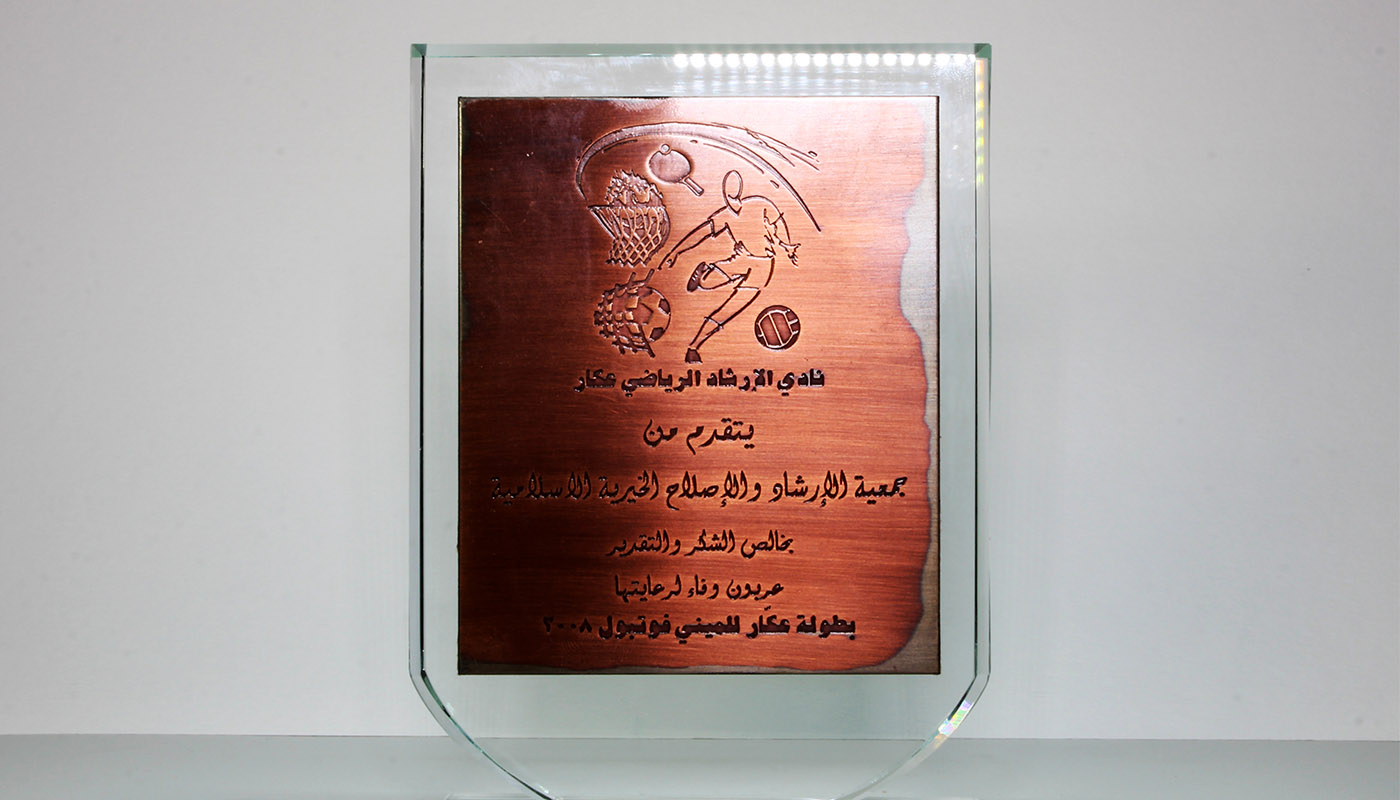 نادي الإرشاد الرياضي عكار
يتقدم من
جمعية الإرشاد والإصلاح الخيرية الاسلامية
بخالص الشكر والتقدير
عربون وفاء لرعايتها
بطولة عكّار للميني فوتبول ٢٠٠٨